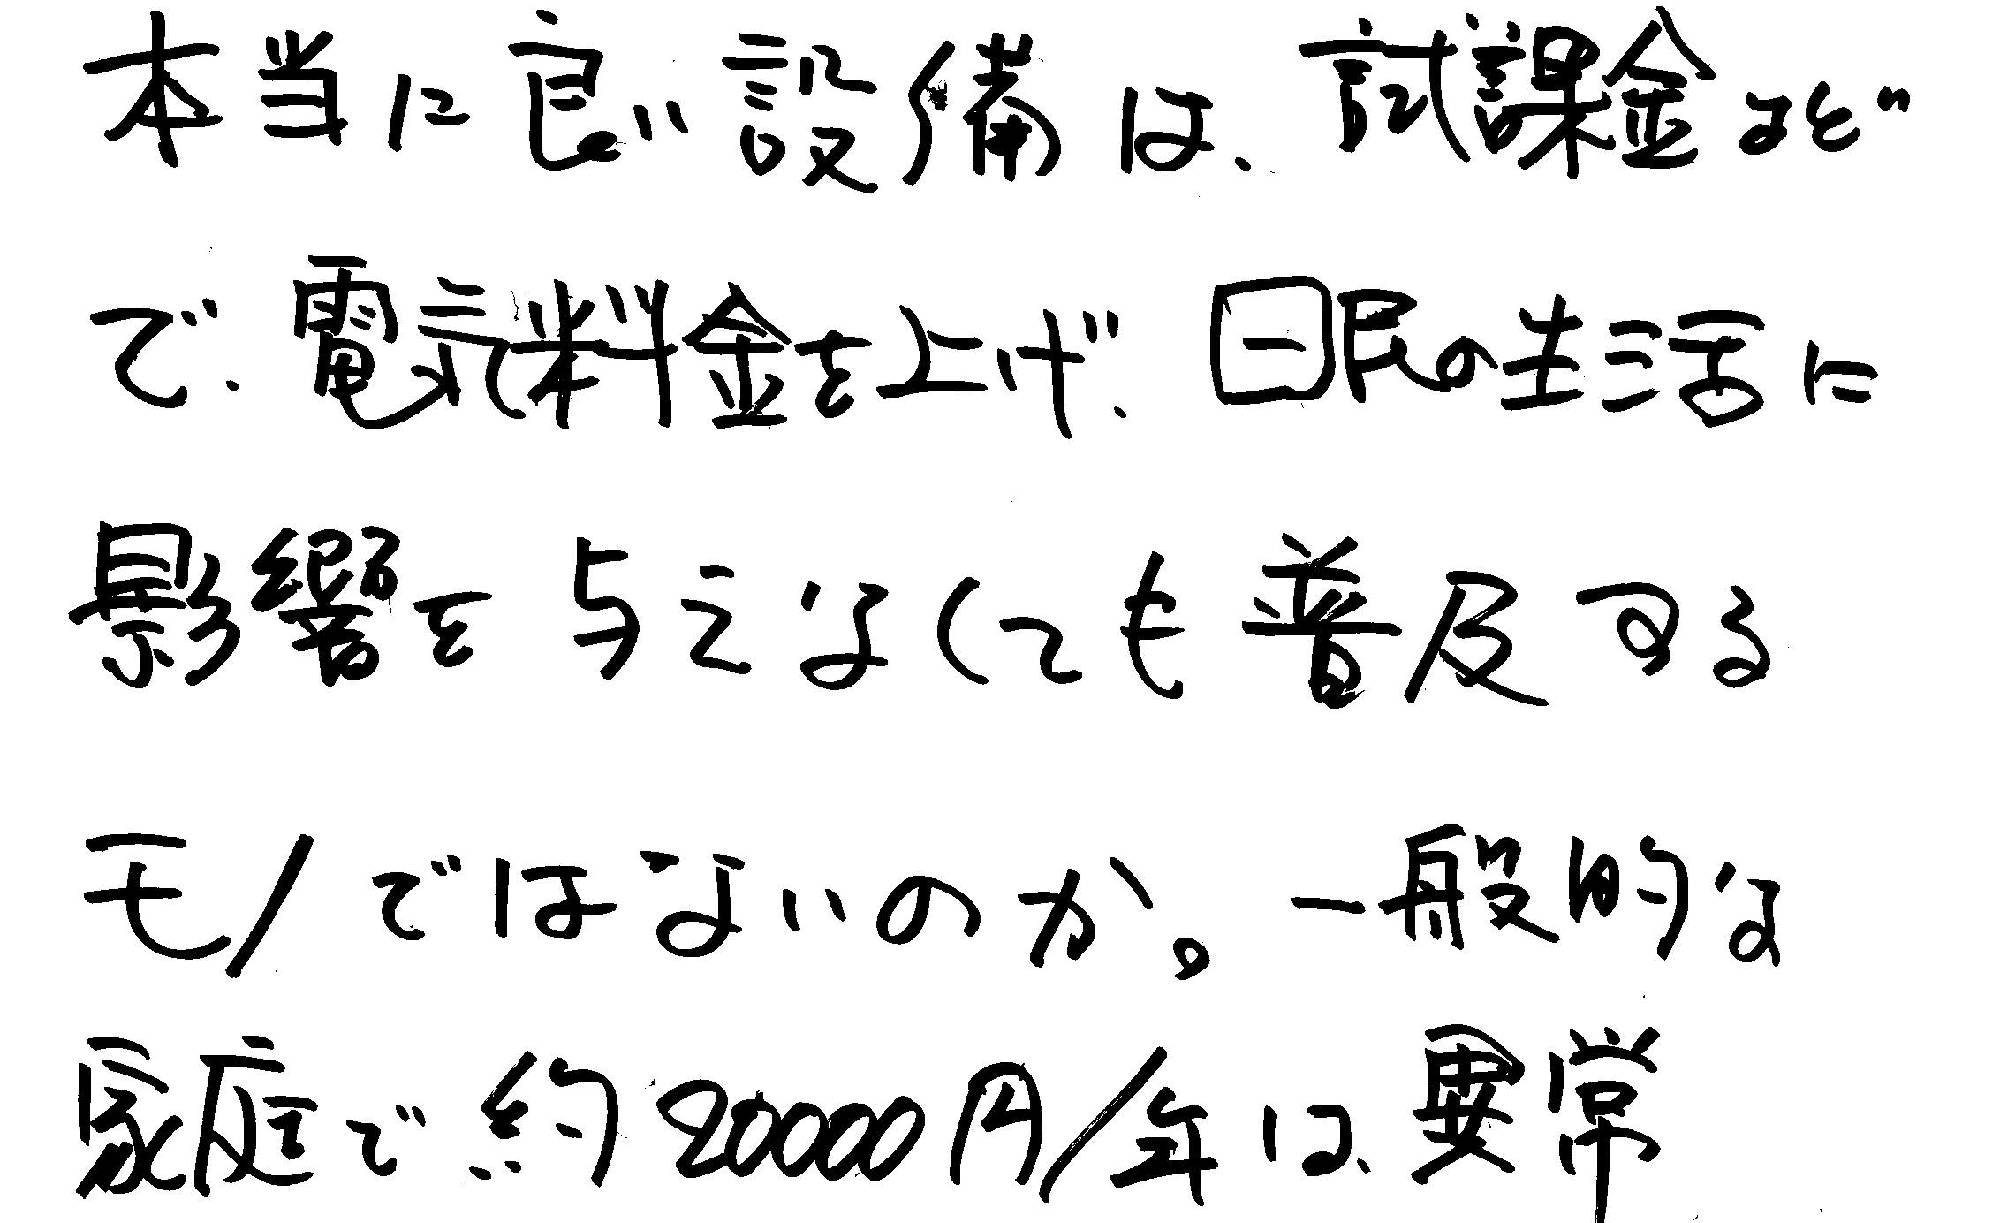 本当に良い設備は、試課金など
で、電気料金を上げ、国民の生活に
影響を与えなくても普及する
モノではないのか。一般的な
家庭で約20000円/年は、異常